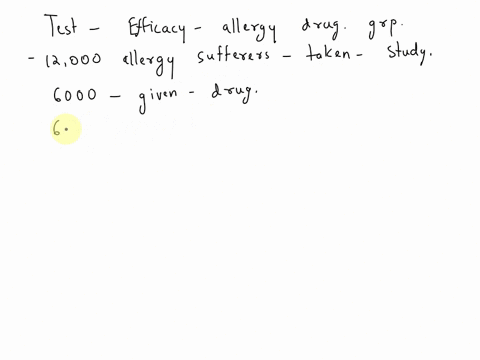 Test - Efficacy - allergy drug. grp.
- 12,000 allergy sufferers - taken - study.
6000 - given - drug.
6.